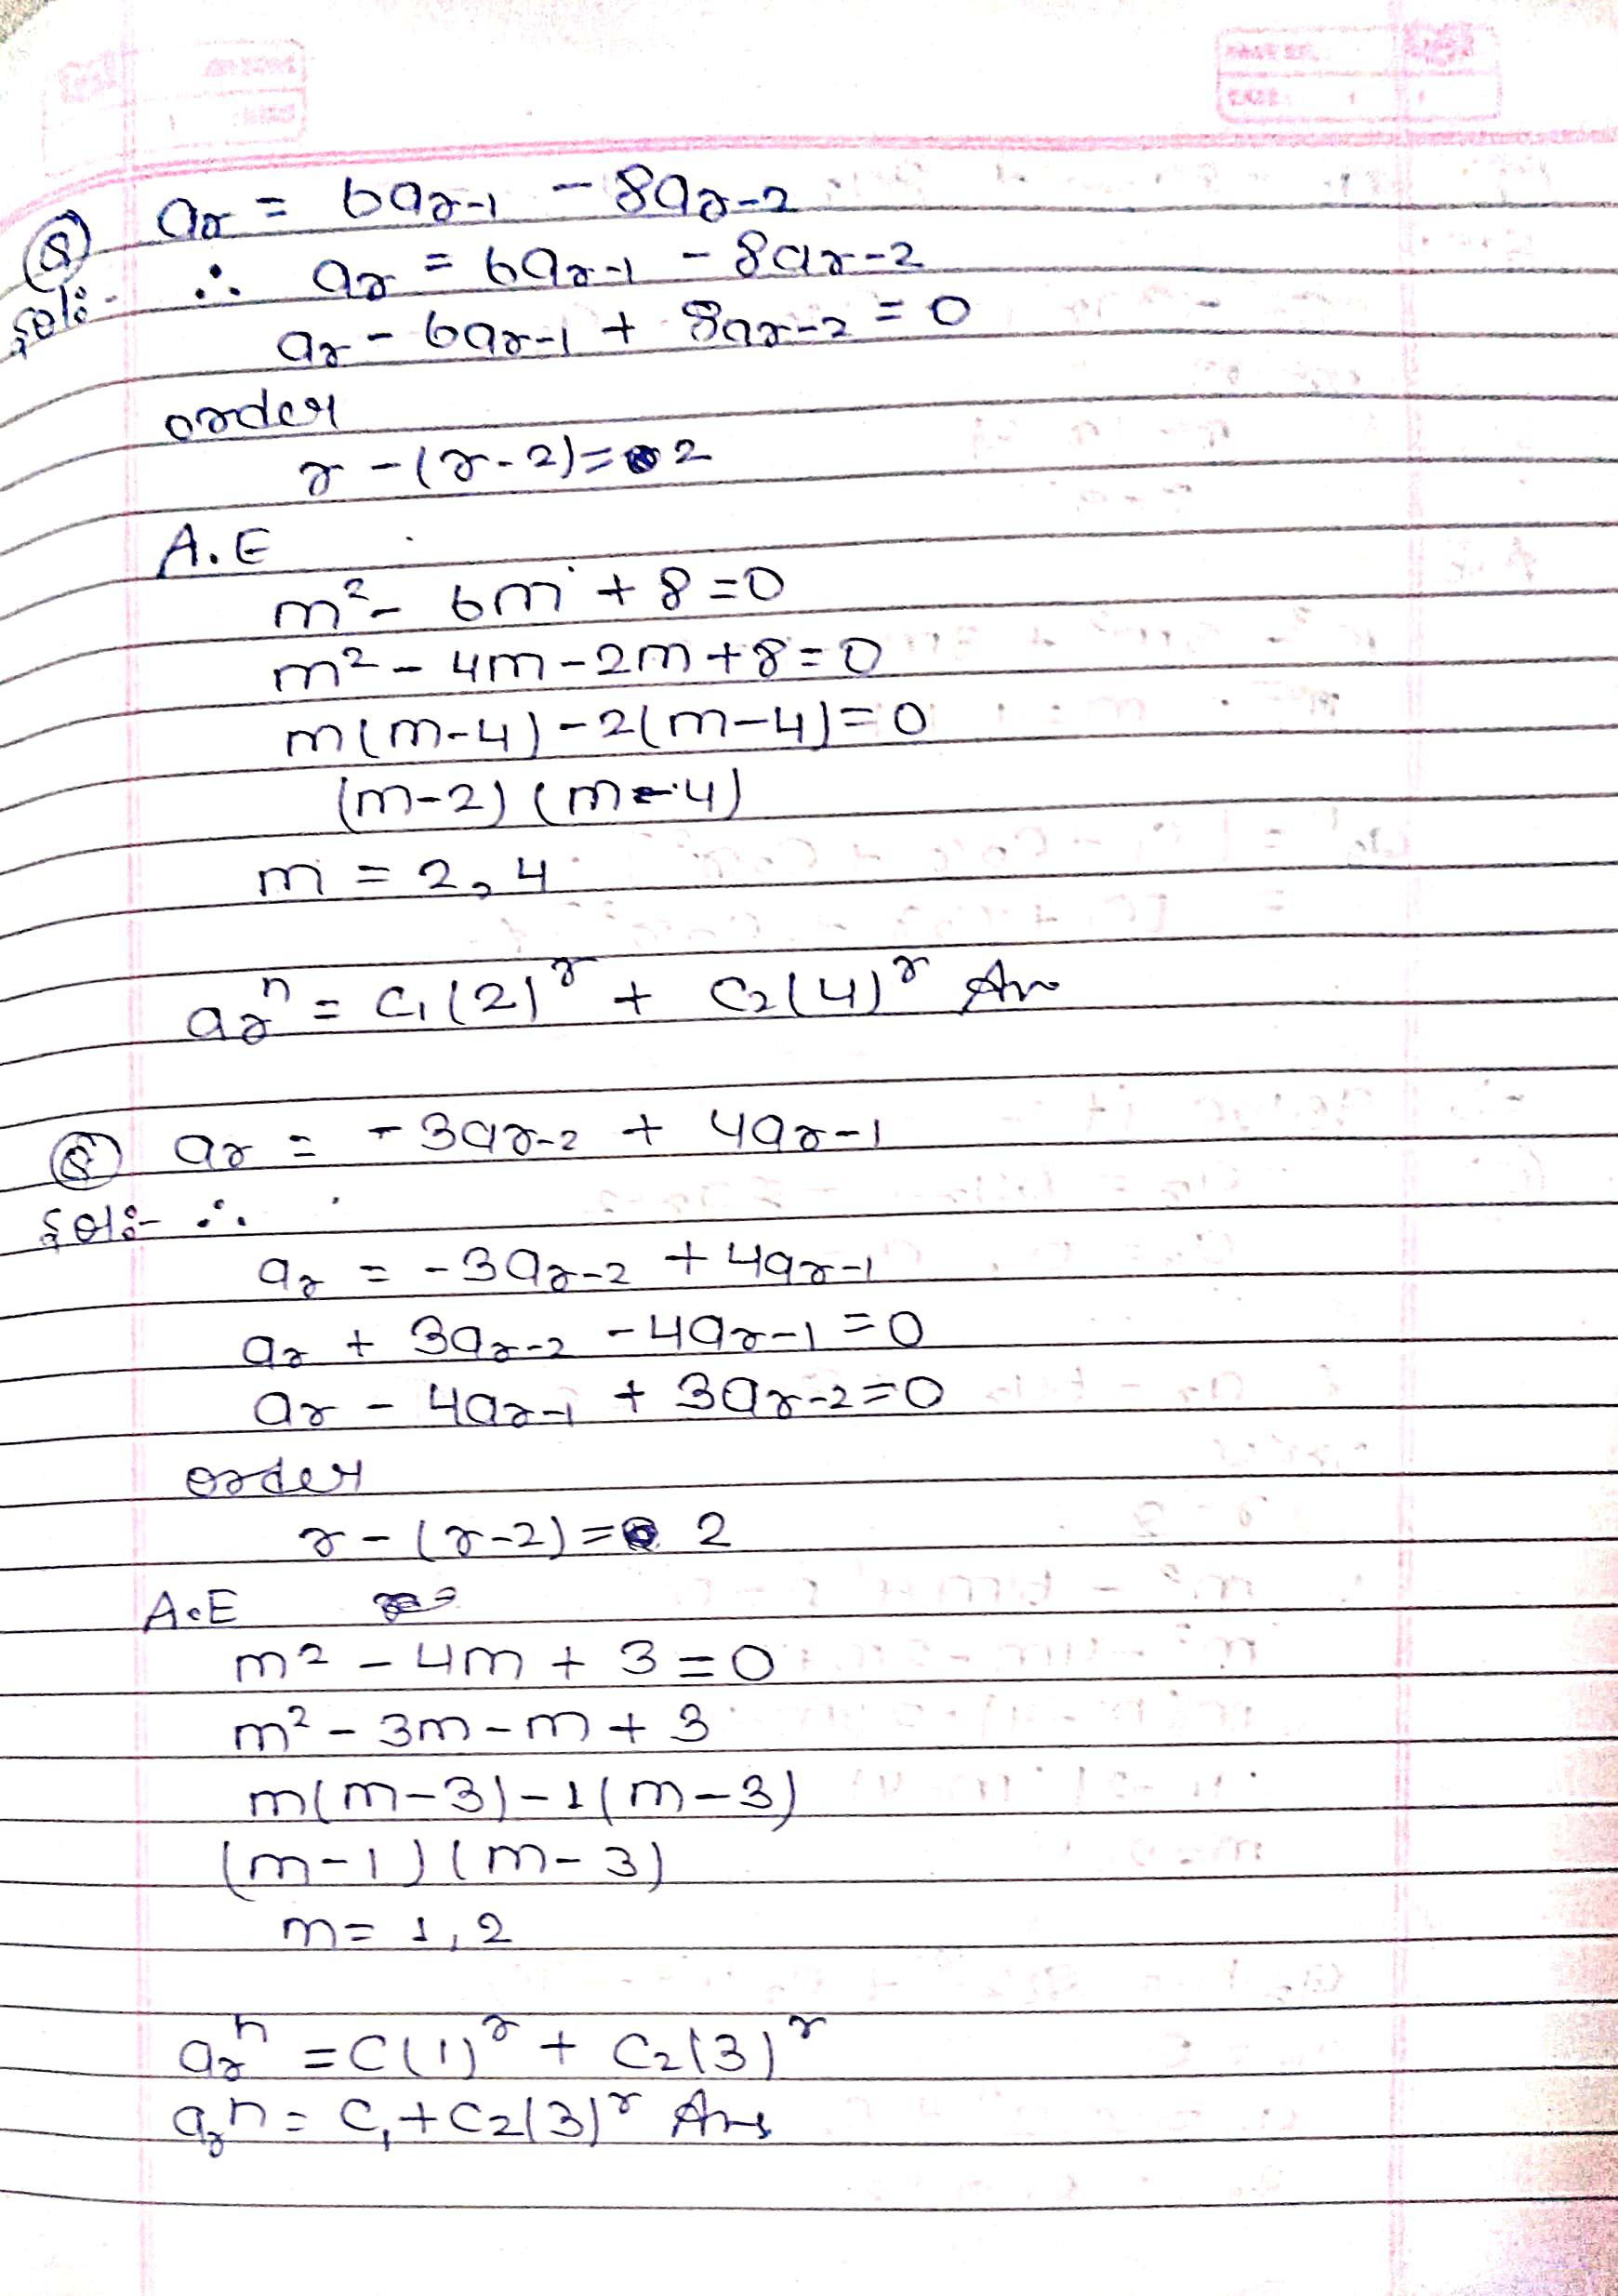 Q) ar = 6ar-1 - 8ar-2
Sol:- ∴ ar = 6ar-1 - 8ar-2
ar - 6ar-1 + 8ar-2 = 0
order
r - (r-2) = 2
A.E
m² - 6m + 8 = 0
m² - 4m - 2m + 8 = 0
m(m-4) - 2(m-4) = 0
(m-2) (m-4)
m = 2, 4
ar^n = C1(2)^r + C2(4)^r An
Q) ar = -3ar-2 + 4ar-1
Sol:- ∴
ar = -3ar-2 + 4ar-1
ar + 3ar-2 - 4ar-1 = 0
ar - 4ar-1 + 3ar-2 = 0
order
r - (r-2) = 2
A.E
m² - 4m + 3 = 0
m² - 3m - m + 3
m(m-3) - 1(m-3)
(m-1) (m-3)
m = 1, 2
ar^n = C(1)^r + C2(3)^r
ar^n = C1 + C2(3)^r Ans